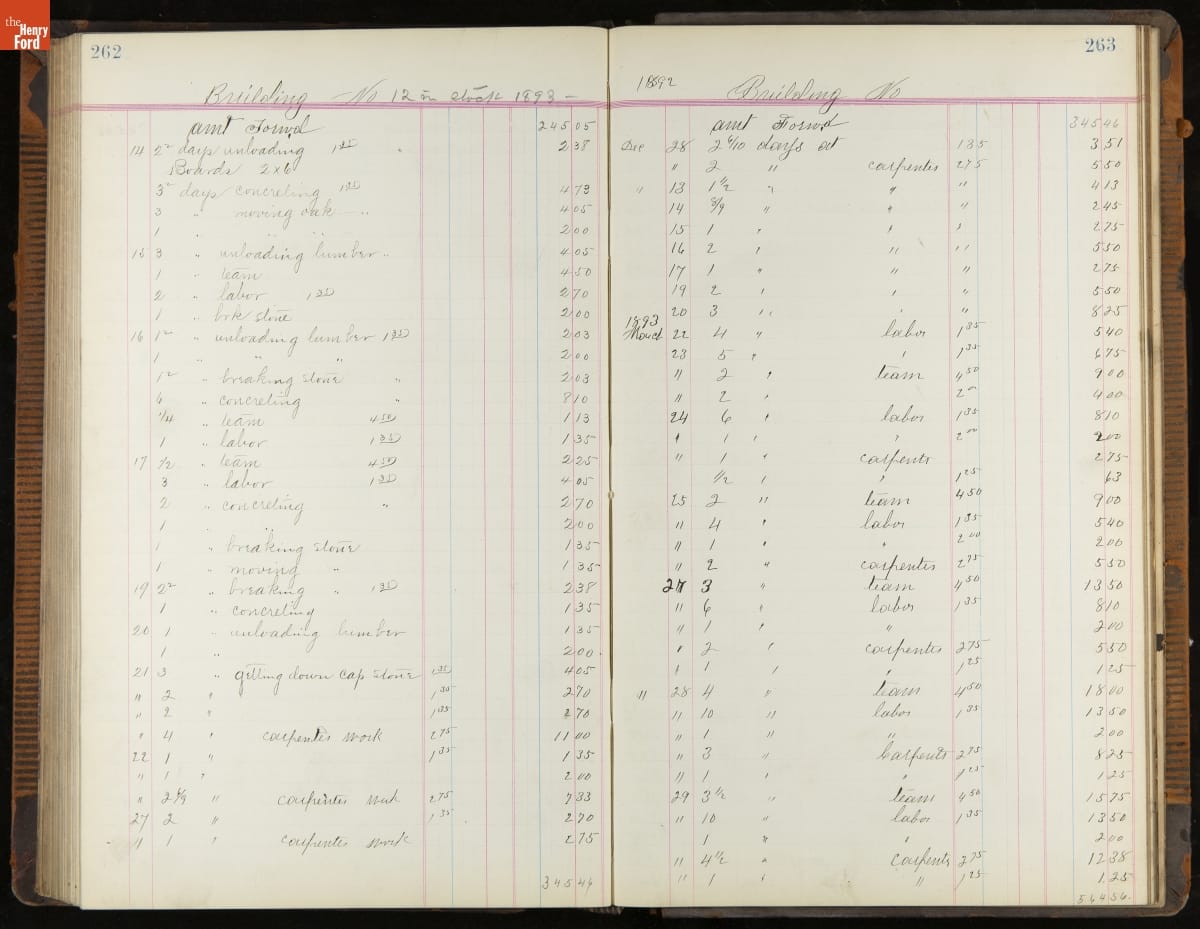 the
Henry
Ford
262
Building No 12 in stock 1893 -
amt Forwd 245 05
14 2² days unloading 1 35 " 2 38
Boards 2x6
3² days concreting 1 35 4 73
3 " moving oak " 4 05
1 " " " 2 00
15 3 " unloading lumber " 4 05
1 " team 4 50
2 " labor 1 35 2 70
1 " brk stone 2 00
16 1² " unloading lumber 1 35 2 03
1 " " " 2 00
1² " breaking stone " 2 03
6 " concreting " 8 10
1/4 " team 4 50 1 13
1 " labor 1 35 1 35
17 1/2 " team 4 50 2 25
3 " labor 1 35 4 05
2 " concreting " 2 70
1 " " 2 00
1 " breaking stone 1 35
1 " moving " 1 35
19 2² " breaking " 1 35 2 38
1 " concreting 1 35
20 1 " unloading lumber 1 35
1 " 2 00
21 3 " getting down cap stone 1 35 4 05
" 2 " 1 35 2 70
" 2 " 1 35 2 70
" 4 " carpenter work 2 75 11 00
22 1 " 1 35 1 35
" 1 " 2 00
" 2 6/9 " carpenter work 2 75 7 33
27 2 " 1 35 2 70
" 1 " carpenter work 2 75
345 46
263
1892 Building No
amt Forwd 345 46
Dec 28 2 6/10 days at 1 35 3 51
" 2 " carpenter 2 75 5 50
" 13 1 1/2 " " " 4 13
14 8/9 " " " 2 45
15 1 " " " 2 75
16 2 " " " 5 50
17 1 " " " 2 75
19 2 " " " 5 50
20 3 " " " 8 25
1893
March 22 4 " labor 1 35 5 40
23 5 " " 1 35 6 75
" 2 " team 4 50 9 00
" 2 " 2 00 4 00
24 6 " labor 1 35 8 10
" 1 " " 2 00 2 00
" 1 " carpenter 2 75
1/2 " " 1 25 63
25 2 " team 4 50 9 00
" 4 " labor 1 35 5 40
" 1 " " 2 00 2 00
" 2 " carpenter 2 75 5 50
27 3 " team 4 50 13 50
" 6 " labor 1 35 8 10
" 1 " " 2 00
" 2 " carpenter 2 75 5 50
" 1 " " 1 25 1 25
" 28 4 " team 4 50 18 00
" 10 " labor 1 35 13 50
" 1 " " 2 00
" 3 " Carpenter 2 75 8 25
" 1 " " 1 25 1 25
29 3 1/2 " team 4 50 15 75
" 10 " labor 1 35 13 50
1 " " 2 00
" 4 1/2 " carpenter 2 75 12 38
" 1 " " 1 25 1 25
564 56